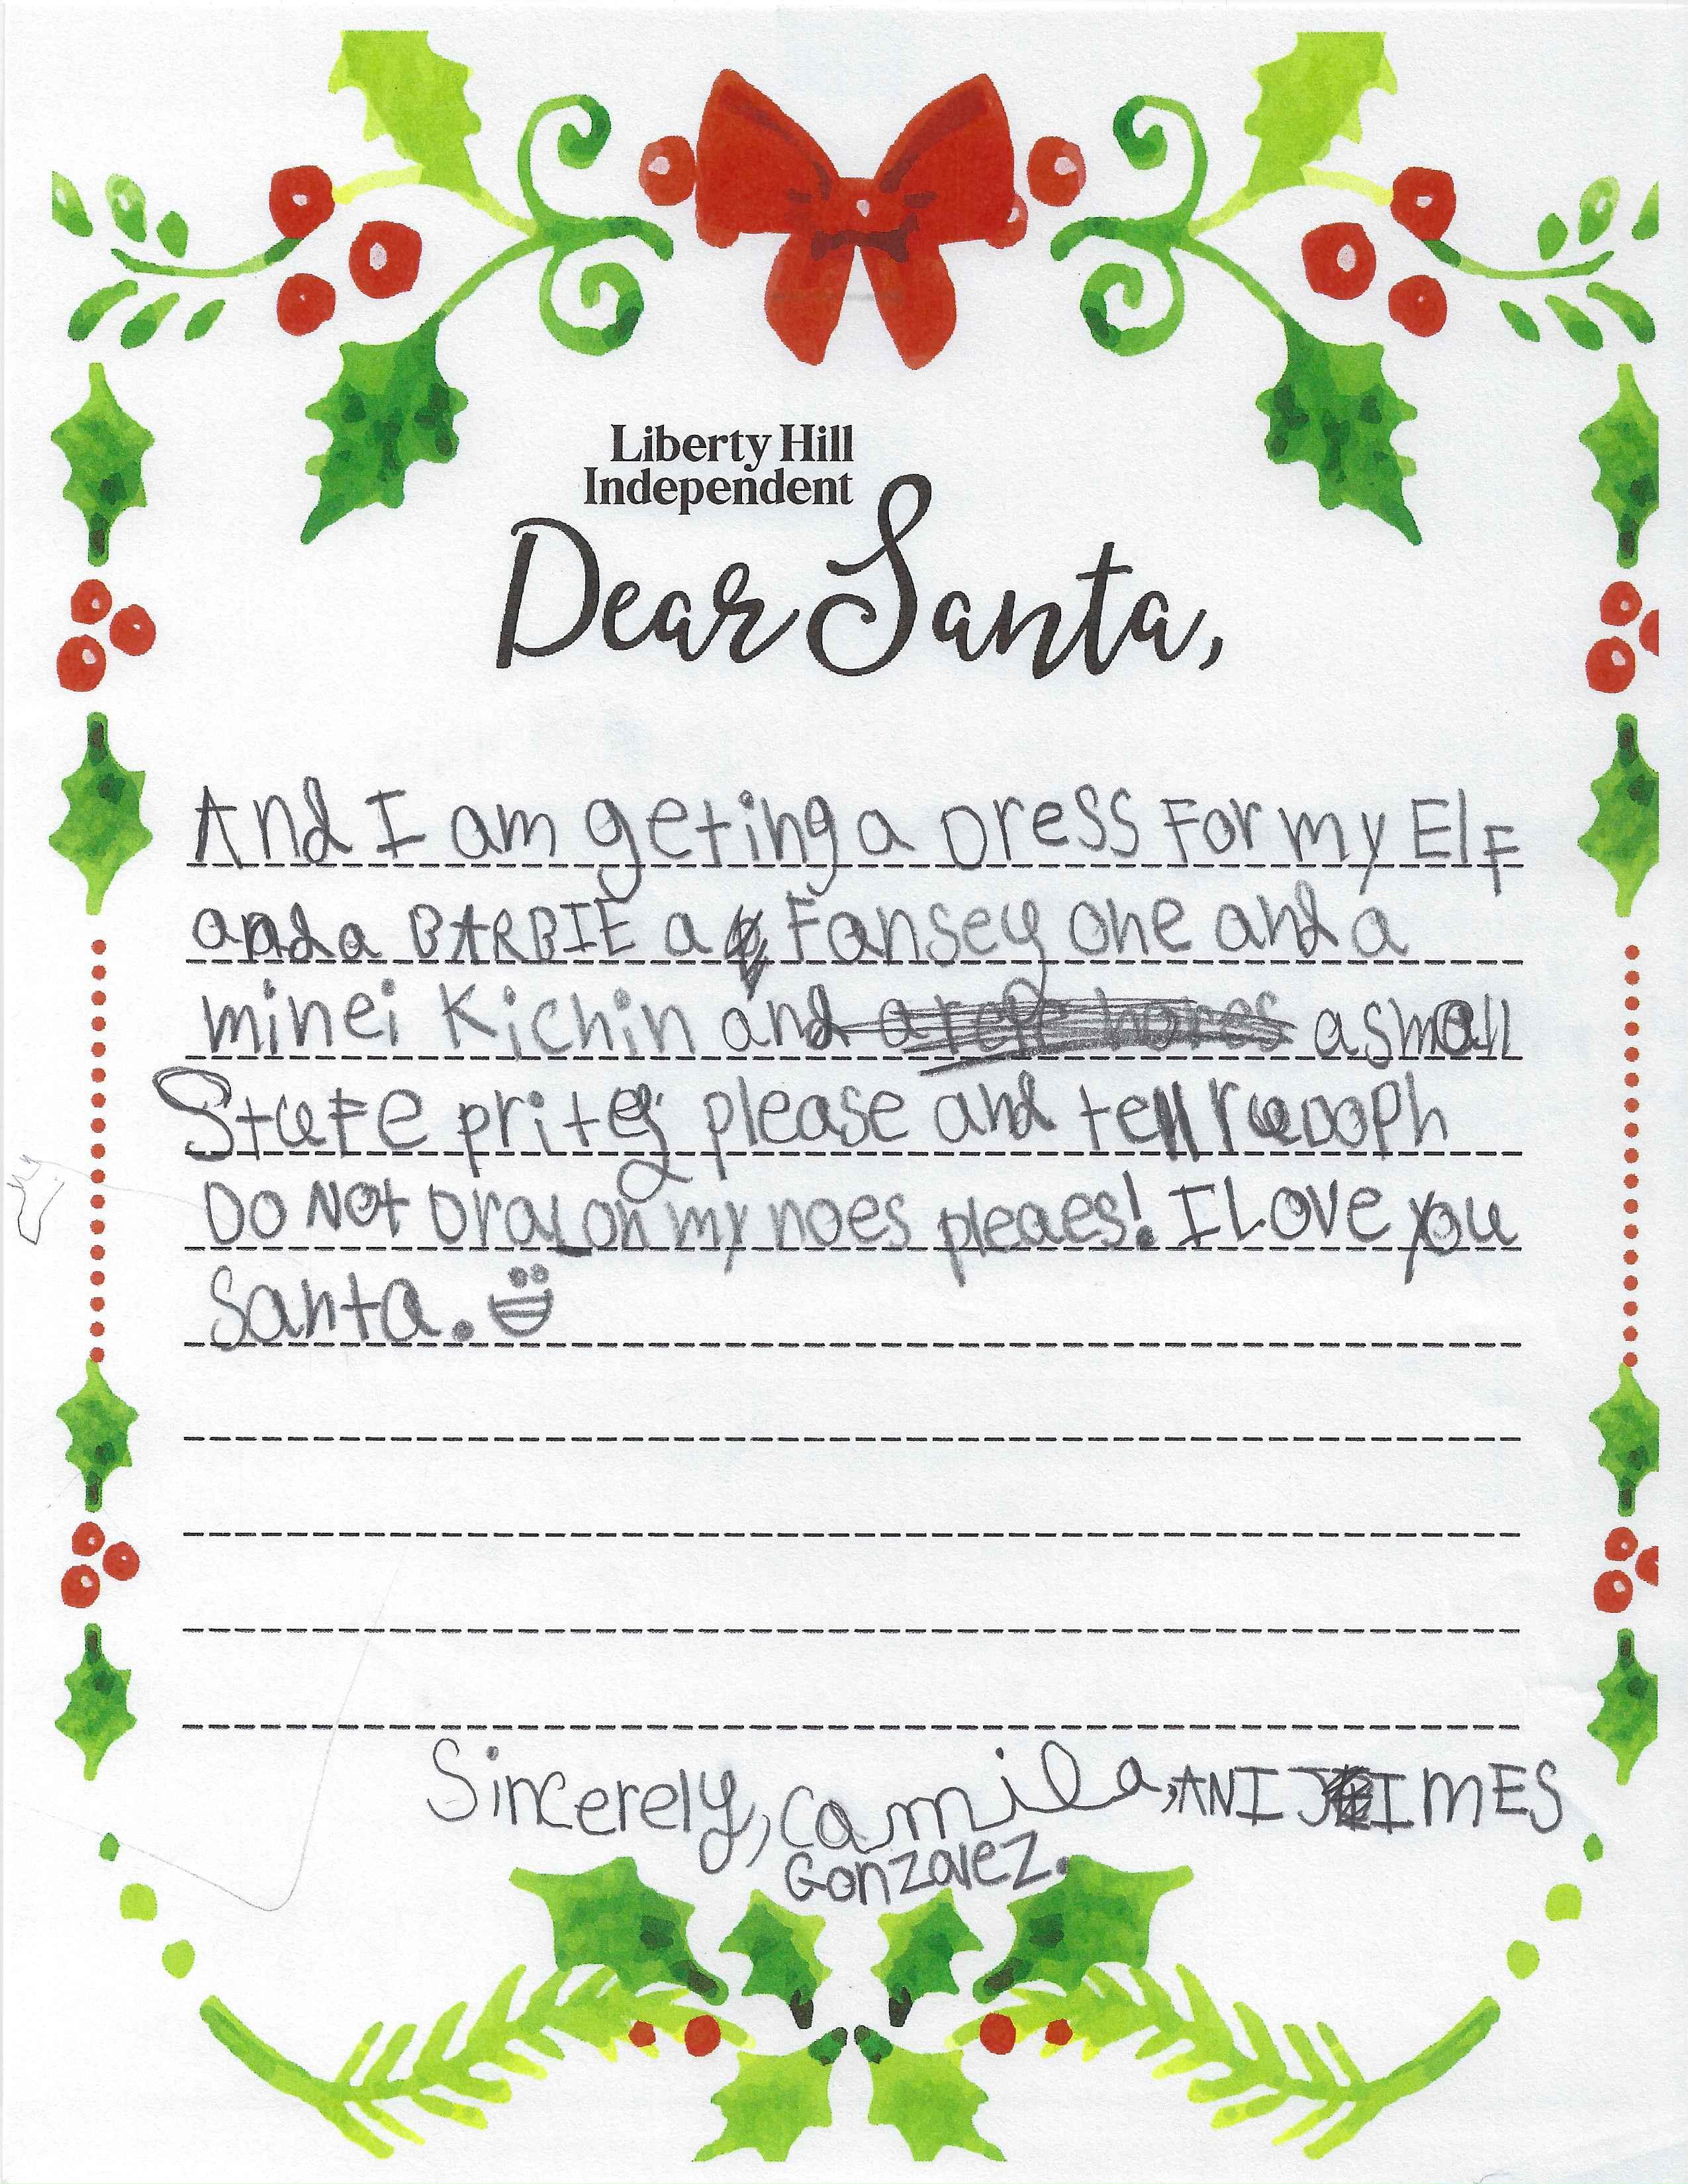 Liberty Hill
Independent
Dear Santa,
And I am geting a Dress For my ElF
and a BARBIE a Fansey one and a
minei Kichin and a small
StuFe pritey please and tell
Do Not Dral on my noes pleaes! I Love you
Santa.
Sincerely, Camila, ANI IMES
Gonzalez.